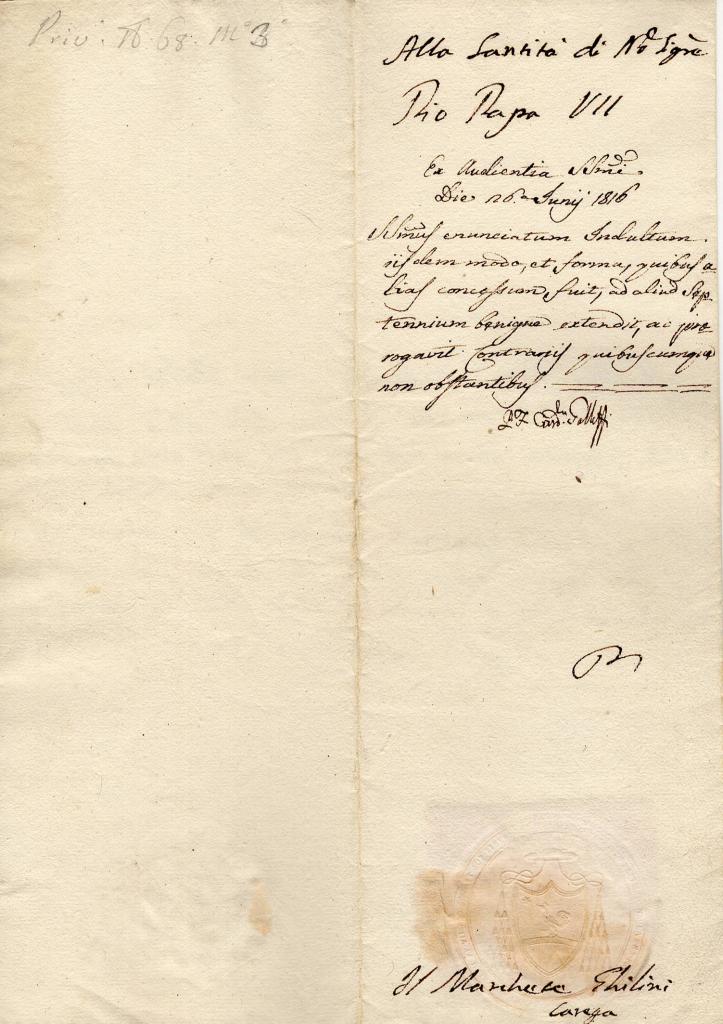 Priv: 16. 68. M.º 3º
Alla Santità di N.ro Sig.re
Pio Papa VII
Ex Audientia SSmi.
Die 26.a Junij 1816
SSmus enunciatum Indultum
iisdem modo, et forma, quibus a
lias concessum fuit, ad aliud Sep-
tennium benigne extendit, ac pro
rogavit Contrarijs quibuscumque
non obstantibus.
Card.
Il Marchese Ghilini